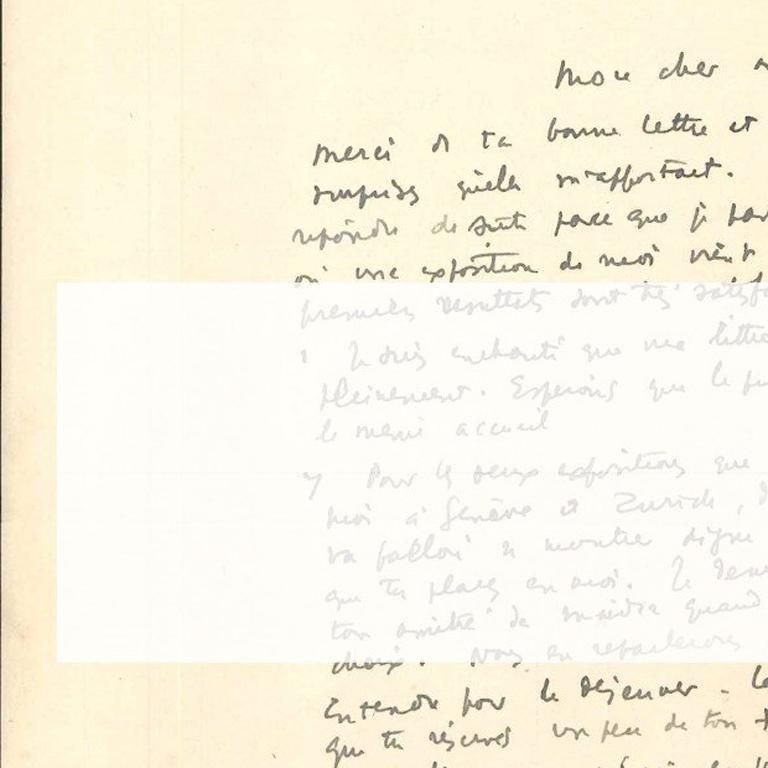 Mon cher
Merci de ta bonne lettre et
surprises qu'elle m'apportait.
répondre de suite parce que je
où une exposition de moi vient
premiers résultats sont très
1 Je suis enchanté que me
pleinement. Espérons que le
le même accueil
Pour les deux expositions que
moi à Genève et Zurich,
va falloir se montrer digne
que tu places en moi. Je
ton amitié de quand
choix. Nous en reparlerons
Entendu pour le déjeuner -
que tu réserves un peu de ton